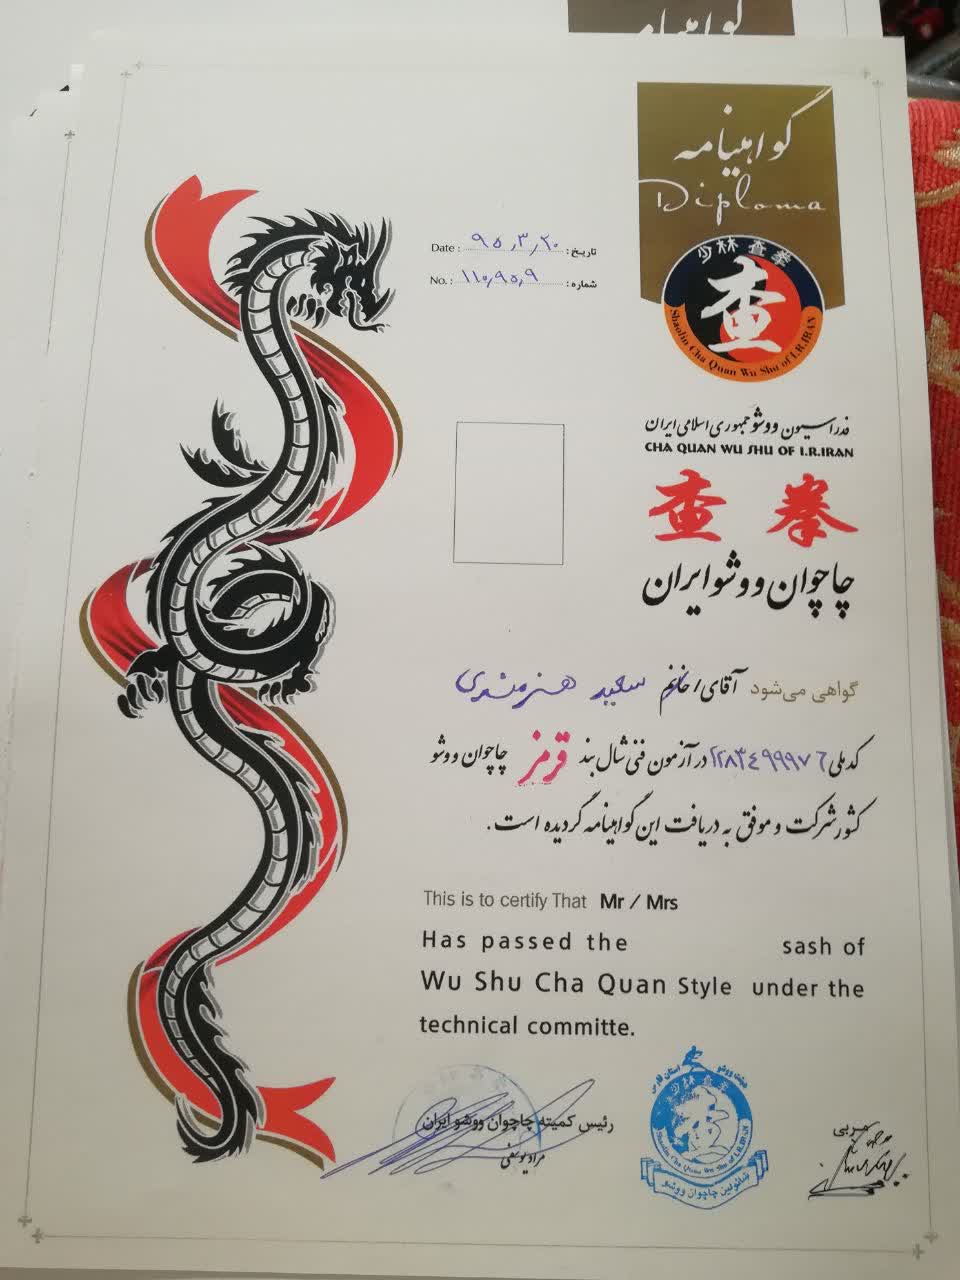 گواهینامه
گواهینامه
Diploma
Date : ۹۵/۳/۲۰ : تاریخ
No. : ۱۱۰/۹۵/۹ : شماره
少林查拳
查
Shaolin Cha Quan Wu Shu of I.R.IRAN
فدراسیون ووشو جمهوری اسلامی ایران
CHA QUAN WU SHU OF I.R.IRAN
查 拳
چاچوان ووشو ایران
گواهی می‌شود آقای/خانم سعید هنرمندی
کد ملی ۱۲۸۳۴۹۹۹۷۶ در آزمون فنی شال بند قرمز چاچوان ووشو
کشور شرکت و موفق به دریافت این گواهینامه گردیده است.
This is to certify That Mr / Mrs
Has passed the sash of
Wu Shu Cha Quan Style under the
technical committe.
رئیس کمیته چاچوان ووشو ایران
مراد یوسفی
هیئت ووشو استان فارس
少林查拳
Shaolin Cha Quan Wu Shu of I.R.IRAN
شائولین چاچوان ووشو
مربی